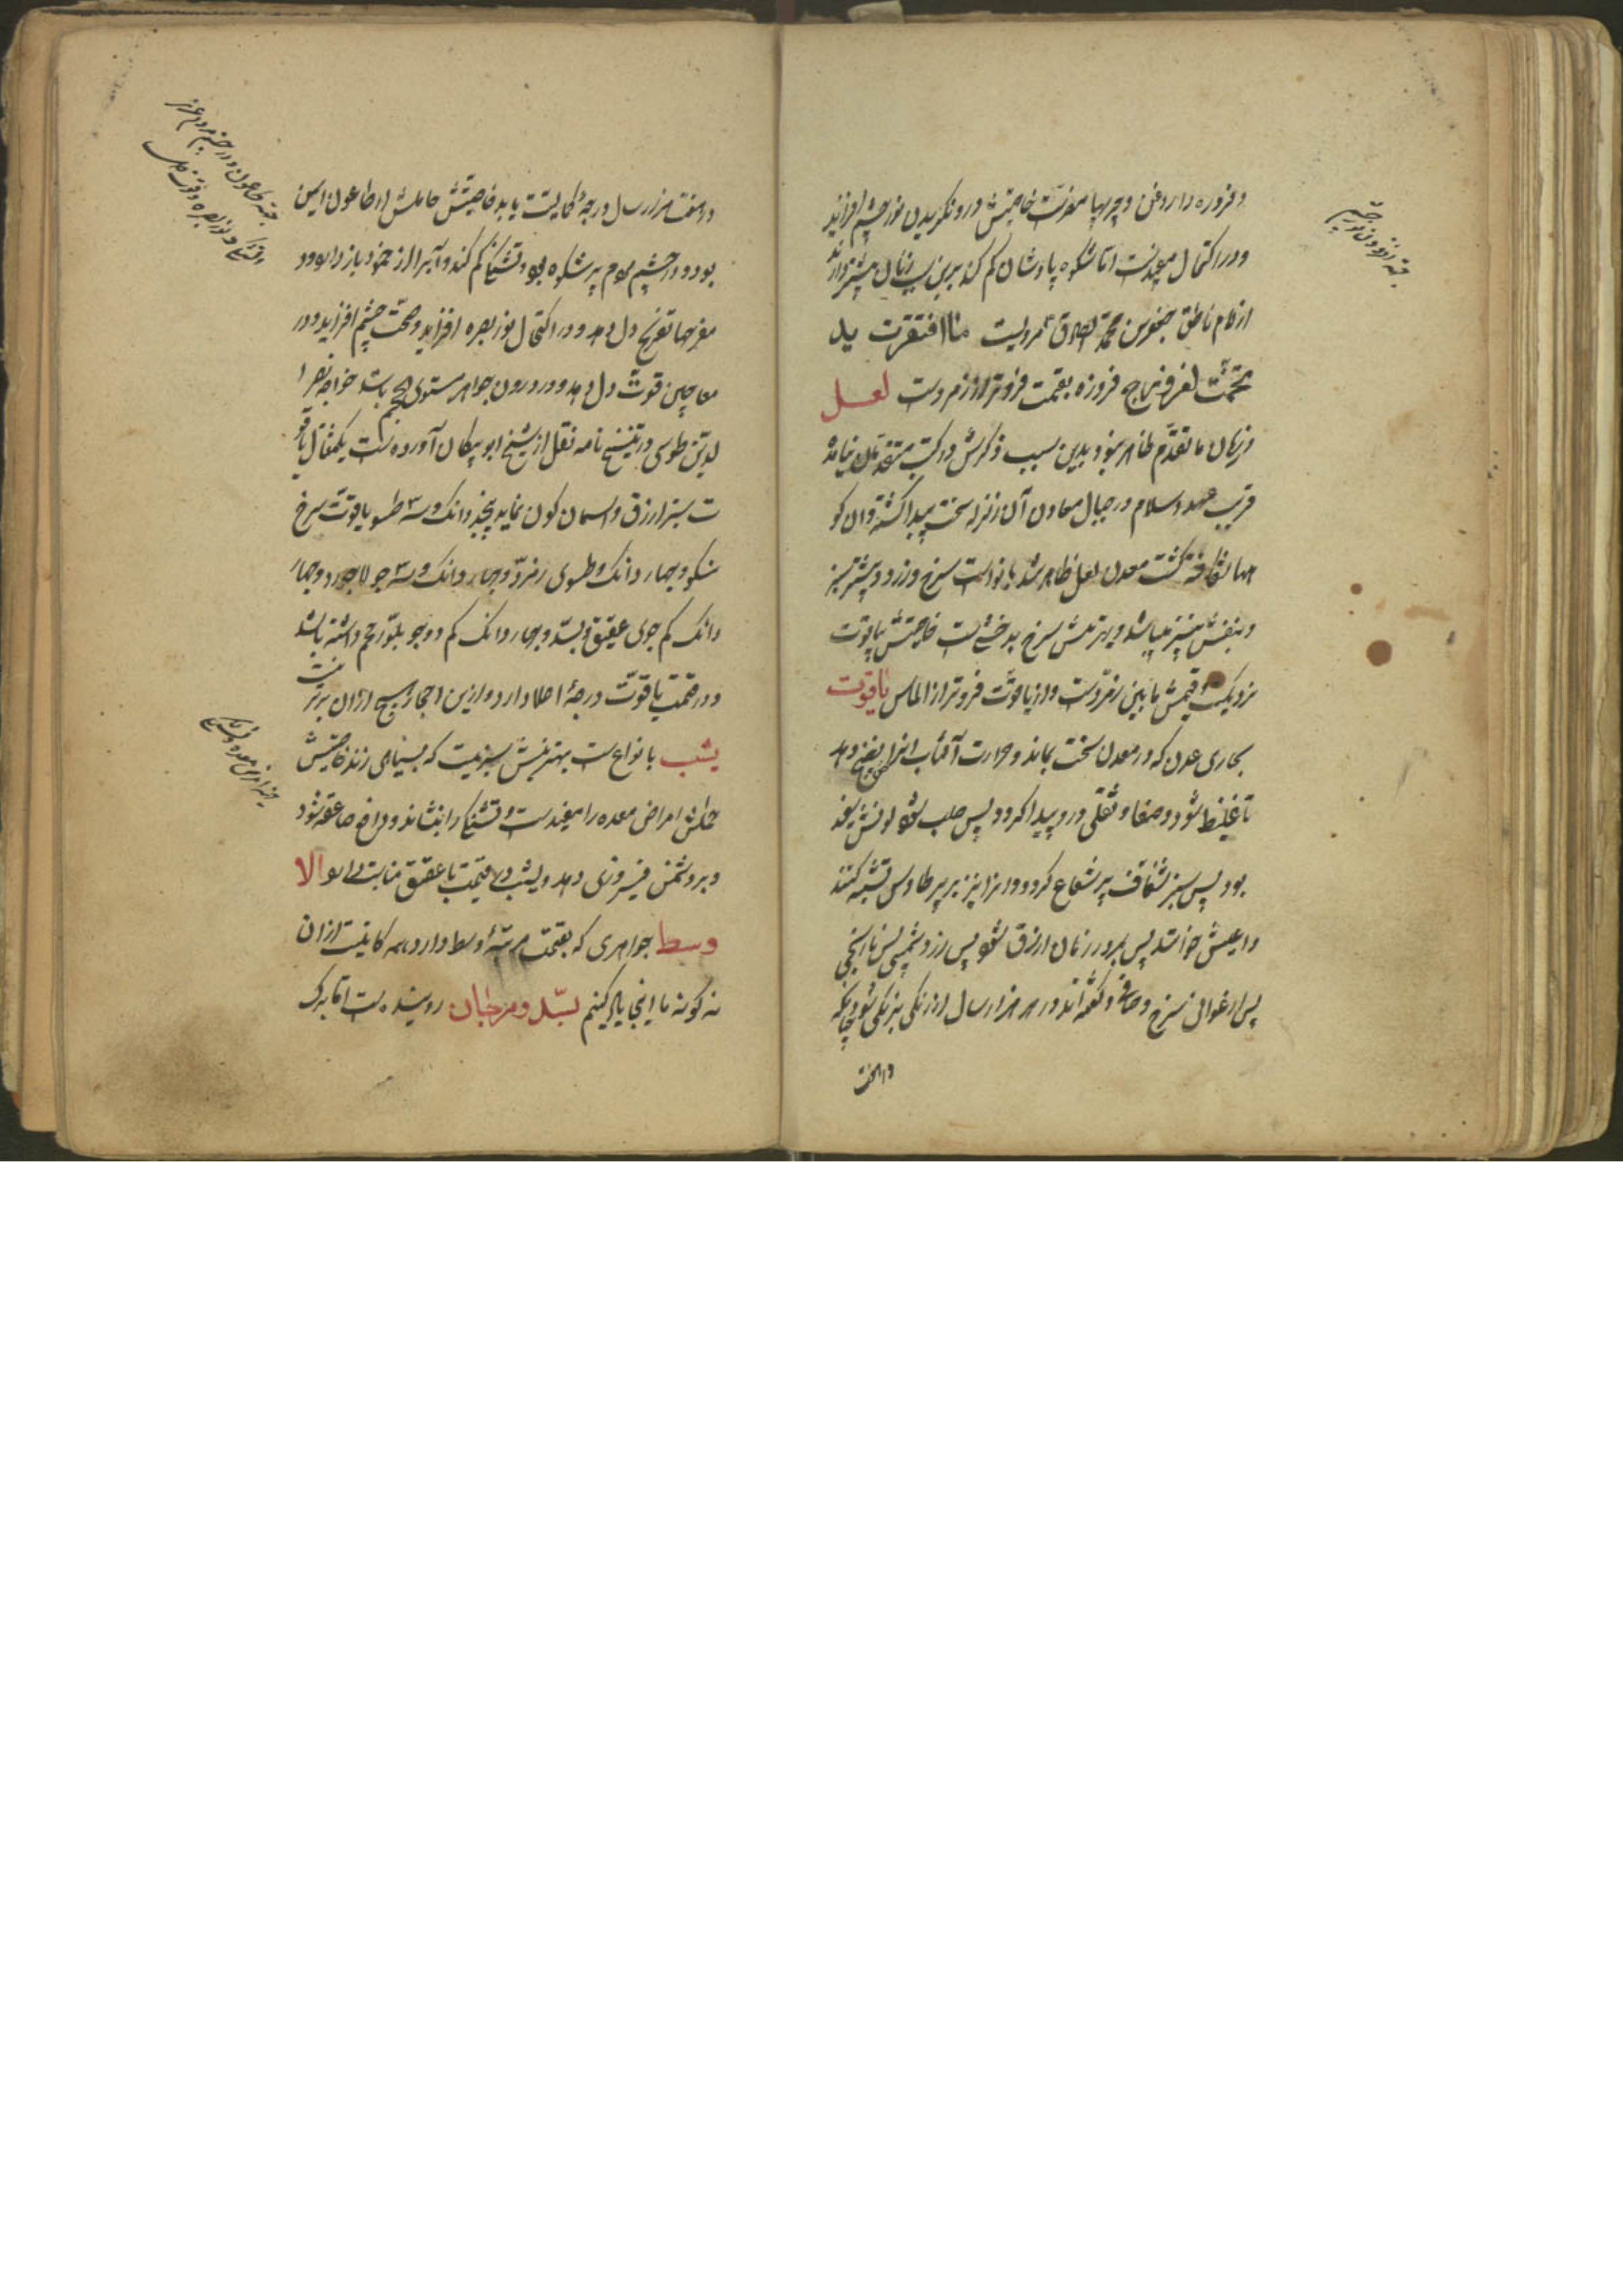 و فیروزه را روغن و چربیها مضرست خاصیتش درو نگریدن نور چشم افزاید
و در اکتحال مفیدست اما شکوه پادشاهان کم کند برین سبب زنان بیشتر دارند
از امام ناطق جعفر بن محمد الصادق مرویست ما افتقرت ید
تختمت بفیروزج فیروزه بقیمت فروتر از زمردست لعل
در زمان ما تقدم ظاهر نبود بدین سبب ذکرش در کتب متقدمان نیامده
قریب عهد اسلام در جبال معادن آن زلزله سخت پیدا گشته و آن کو
هها شکافته گشت معدن لعل ظاهر شد بانواعست سرخ و زرد و بیشتر سبز
و بنفش نیز میباشد و بهترینش سرخ بدخشیست خاصیتش بیاقوت
نزدیکست قیمتش مابین زمردست و از یاقوت فروتر از الماس یاقوت
بخاری عدن که در معدن سخت بماند و حرارت آفتاب انرا نضج دهد
تا غلیظ شود و صفا و ثقلی درو پیدا گردد پس صلب شود لونش سفید
بود پس سبز شفاف پر شعاع گردد و در نیز بر پر طاوس تشبیه کنند
و اریعش خوانند پس بمرور زمان ازرق شود پس زرد مشمشی پس نارنجی
پس ارغوانی سرخ و صافی و گفته‌اند در هر هزار سال از رنگی برنگی شود چنانکه
در هفت
جهة افزودن نور چشم
در هفت هزار سال درجهٔ کمالیت یابد خاصیتش حاملش از طاعون ایمن
بود و در چشم مردم پر شکوه بود و تشنگی کم کند و آبرا از جمود باز دارد و در
مفرحها تفریح دل دهد و در اکتحال نور بصره افزاید و صحت چشم افزاید و در
معاجین قوت دل دهد و در وزن جواهر مستوی الحجم باشد خواجه نصیرا
لدین طوسی در تنسخ نامه نقل از شیخ ابو ریحان آورده است یکمثقال یاقو
ت سبز ازرق و اسمان کون نماید پنج دانک و سه طسو یاقوت سرخ
نیکو و چهار دانک و طسوی زمرد و چهار دانک و سه جو لاجورد و چهار
دانک کم جوی عقیق و بسد و چهار دانک کم دو جو بلور حجم داشته باشد
و در قیمت یاقوت درجهٔ اعلا دارد و ازین احجار هیچ ازان برتر نیست
یشب بانواع ست بهترینش سبزیست که بسیاهی زند خاصیتش
حاملش امراض معده را مفیدست و تشنگی را بنشاند و دافع صاعقه شود
و بر دشمن فیروزی دهد و یشب در قیمت با عقیق مناسبت دارد الا
وسط جواهری که بقیمت مرتبهٔ وسط دارد همه کانیست ازان
نه گونه ما اینجا یاد کنیم بسد و مرجان روینده است اما برگ
جهة طاعون و در چشم مردم عزیز
تشنگی و نور بصره و قوت دل
جهة امراض معده و تشنگی